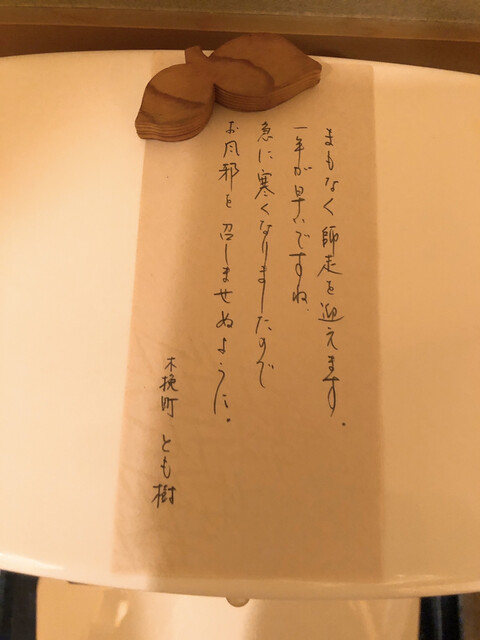 まもなく師走を迎えます。
一年が早いですね。
急に寒くなりましたので
お風邪を召しませぬように。
木挽町 とも樹